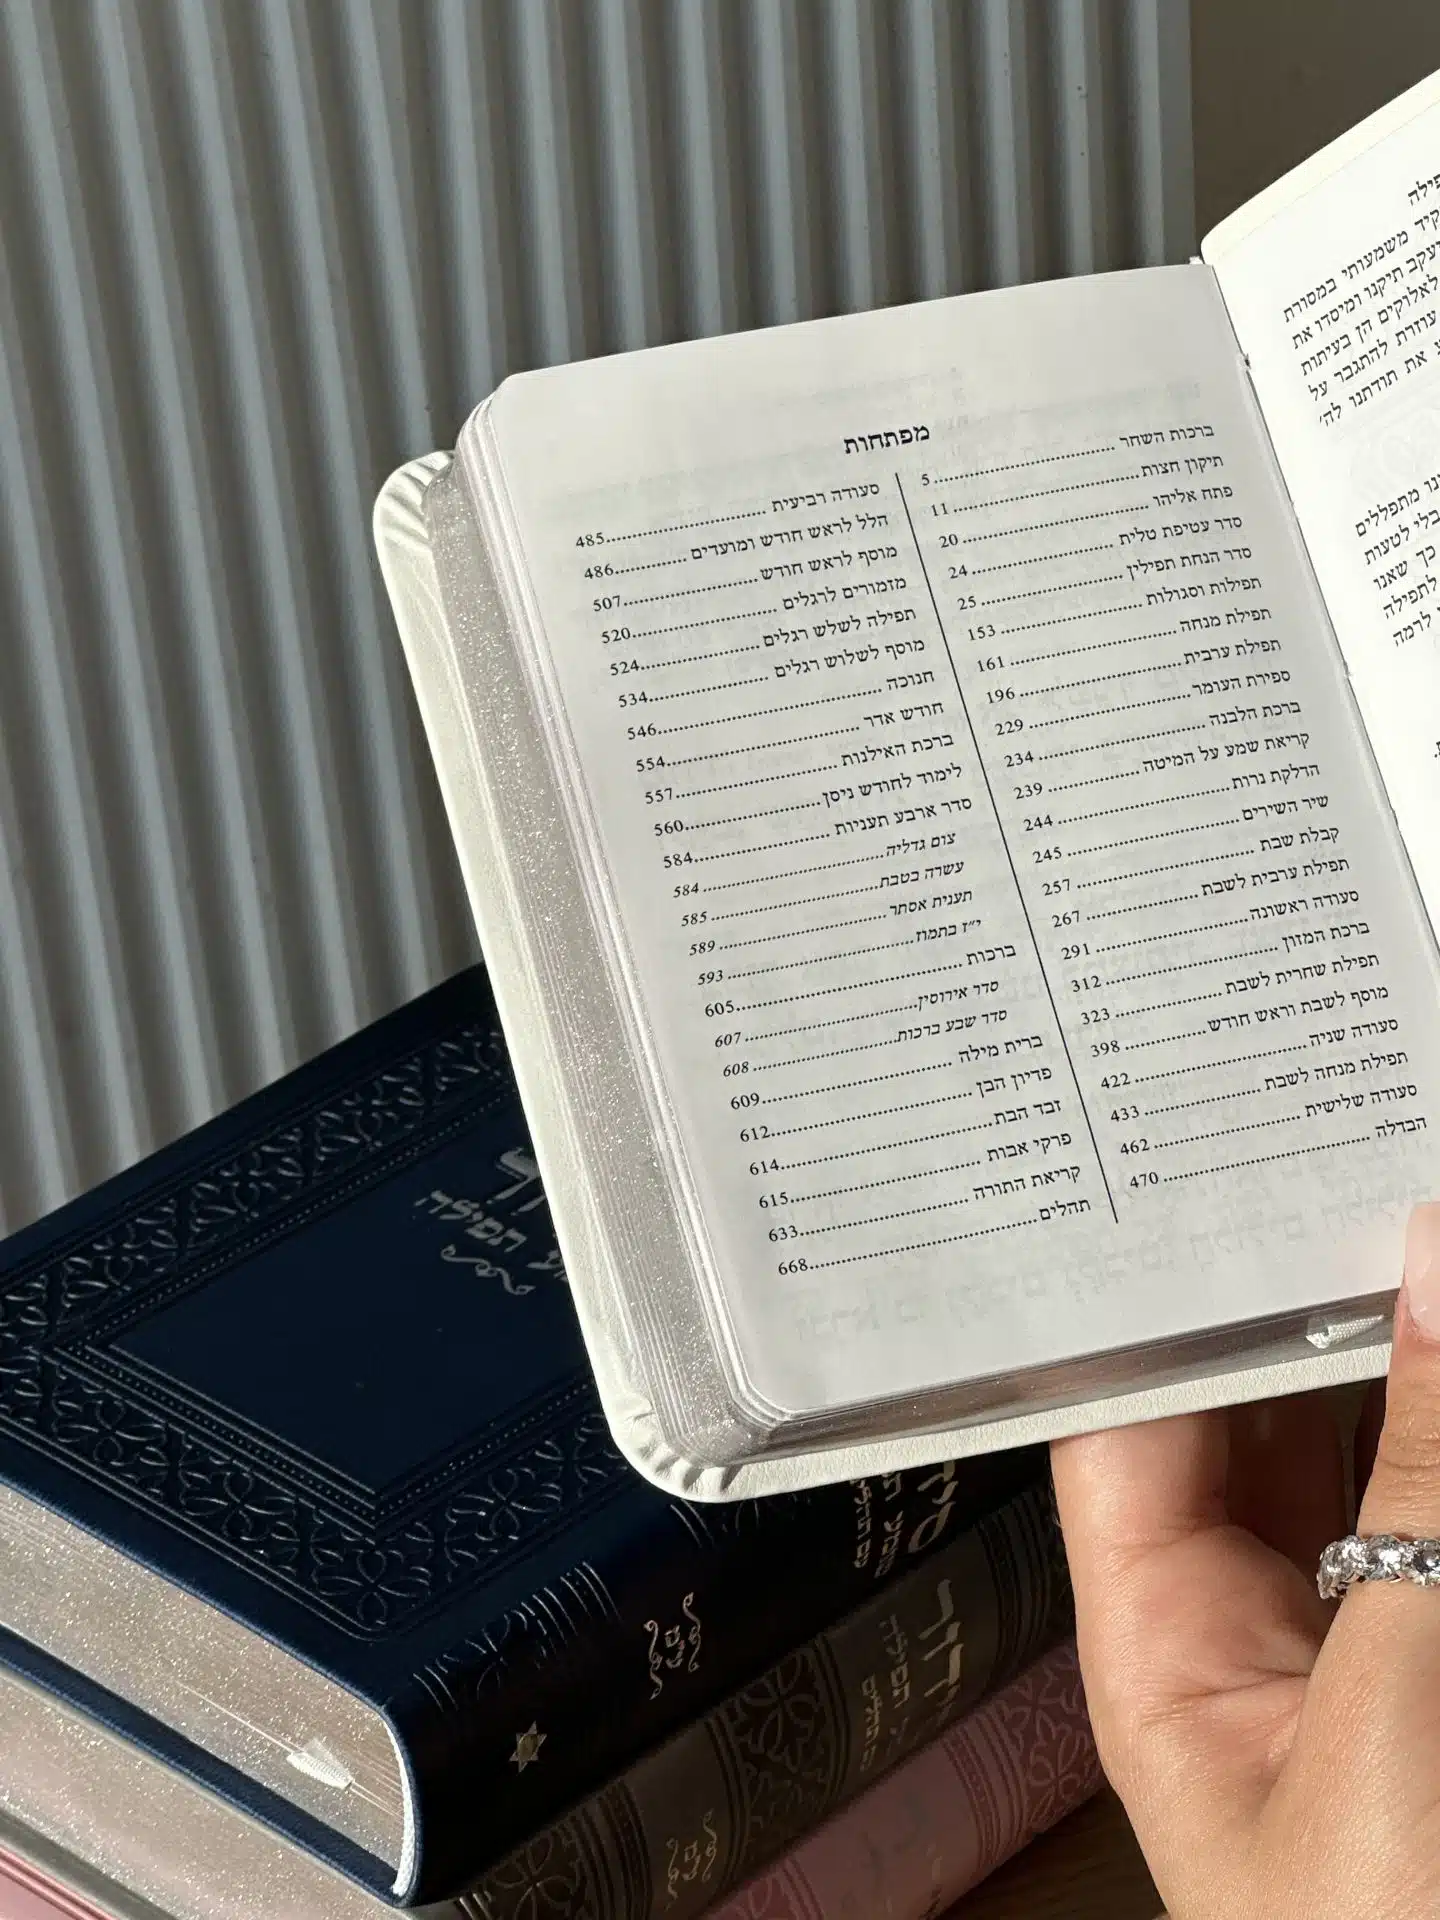 מפתחות
ברכות השחר ........ 5
תיקון חצות ........ 11
פתח אליהו ........ 20
סדר עטיפת טלית ........ 24
סדר הנחת תפילין ........ 25
תפילות וסגולות ........ 153
תפילת מנחה ........ 161
תפילת ערבית ........ 196
ספירת העומר ........ 229
ברכת הלבנה ........ 234
קריאת שמע על המיטה ........ 239
הדלקת נרות ........ 244
שיר השירים ........ 245
קבלת שבת ........ 257
תפילת ערבית לשבת ........ 267
סעודה ראשונה ........ 291
ברכת המזון ........ 312
תפילת שחרית לשבת ........ 323
מוסף לשבת וראש חודש ........ 398
סעודה שניה ........ 422
תפילת מנחה לשבת ........ 433
סעודה שלישית ........ 462
הבדלה ........ 470
סעודה רביעית ........ 485
הלל לראש חודש ומועדים ........ 486
מוסף לראש חודש ........ 507
מזמורים לרגלים ........ 520
תפילה לשלש רגלים ........ 524
מוסף לשלוש רגלים ........ 534
חנוכה ........ 546
חודש אדר ........ 554
ברכת האילנות ........ 557
לימוד לחודש ניסן ........ 560
סדר ארבע תעניות ........ 584
צום גדליה ........ 584
עשרה בטבת ........ 585
תענית אסתר ........ 589
י״ז בתמוז ........ 593
ברכות ........ 605
סדר אירוסין ........ 607
סדר שבע ברכות ........ 608
ברית מילה ........ 609
פדיון הבן ........ 612
זבד הבת ........ 614
פרקי אבות ........ 615
קריאת התורה ........ 633
תהלים ........ 668
משמעותי במסורת
תיקנו ומיסדו את
לאלוקים הן בעיתות
עוזרת להתגבר על
את תודתנו לה׳
מתפללים
בלי לטעות
כך שאנו
לתפילה
לרמה
תפילה